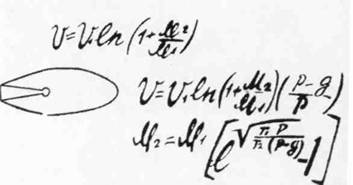 V=V₁ln(1+M₂/M₁)
V=V₁ln(1+M₂/M₁)(p-g/p)
M₂=M₁[e√ p/(p-g) -1]